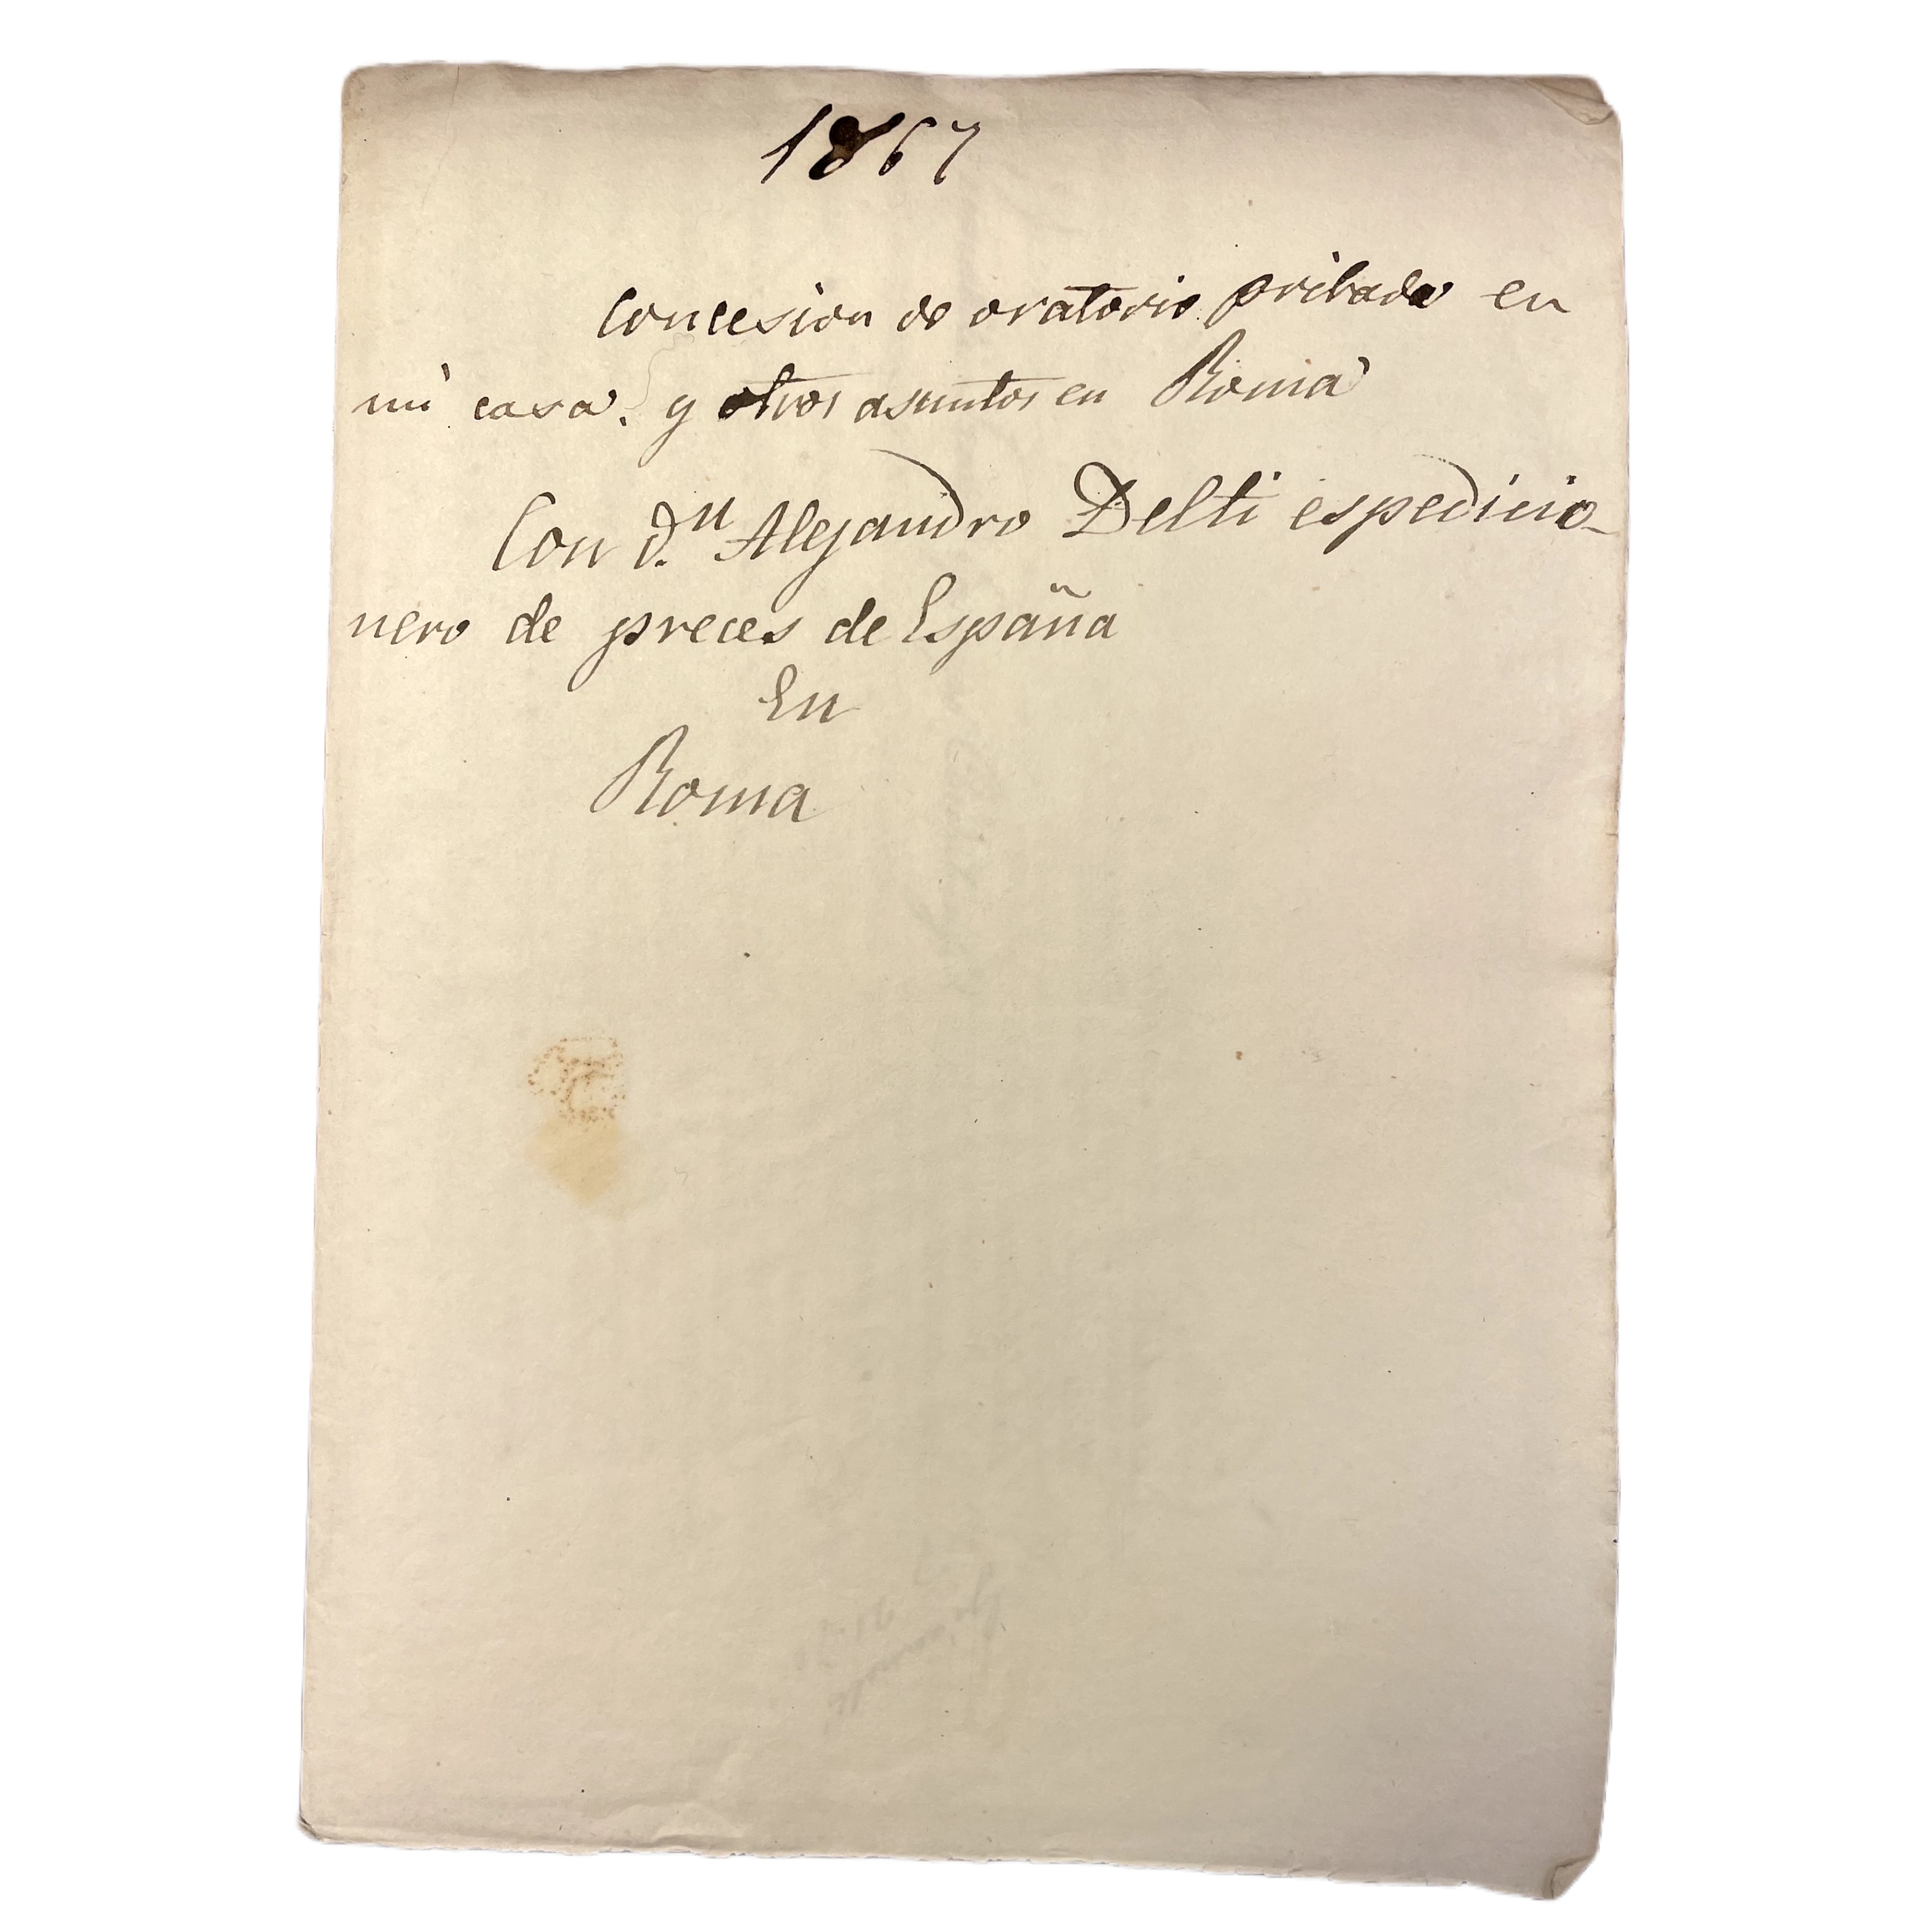 1867
Concesion de oratorio pribado en
mi casa. y otros asuntos en Roma
Con D.n Alejandro Delti espedicio-
nero de preces de España
En
Roma